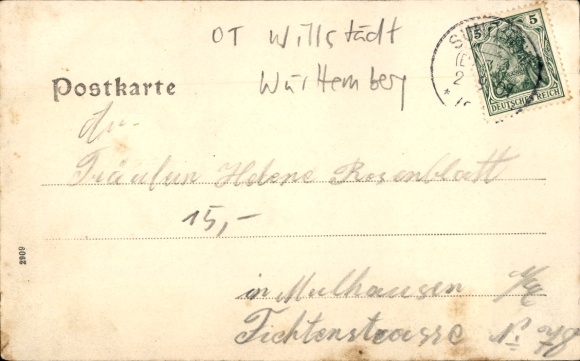 OT Willstädt
Württemberg
Postkarte
An
Fräulein Helene Rosenblatt
15,-
in Mulhausen
Fichtenstrasse N. 78
2909
5
5
DEUTSCHES REICH